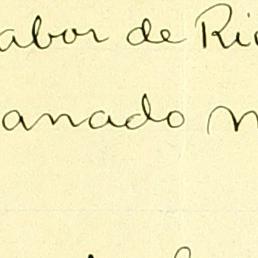 abor de Ri
anado